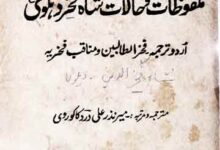 ملفوظات و حالات شاہ فخر دہلوی
اردو ترجمہ فخر الطالبین و مناقب فخریہ
مترجمہ و مرتبہ: میر نذر علی درد کاکوروی